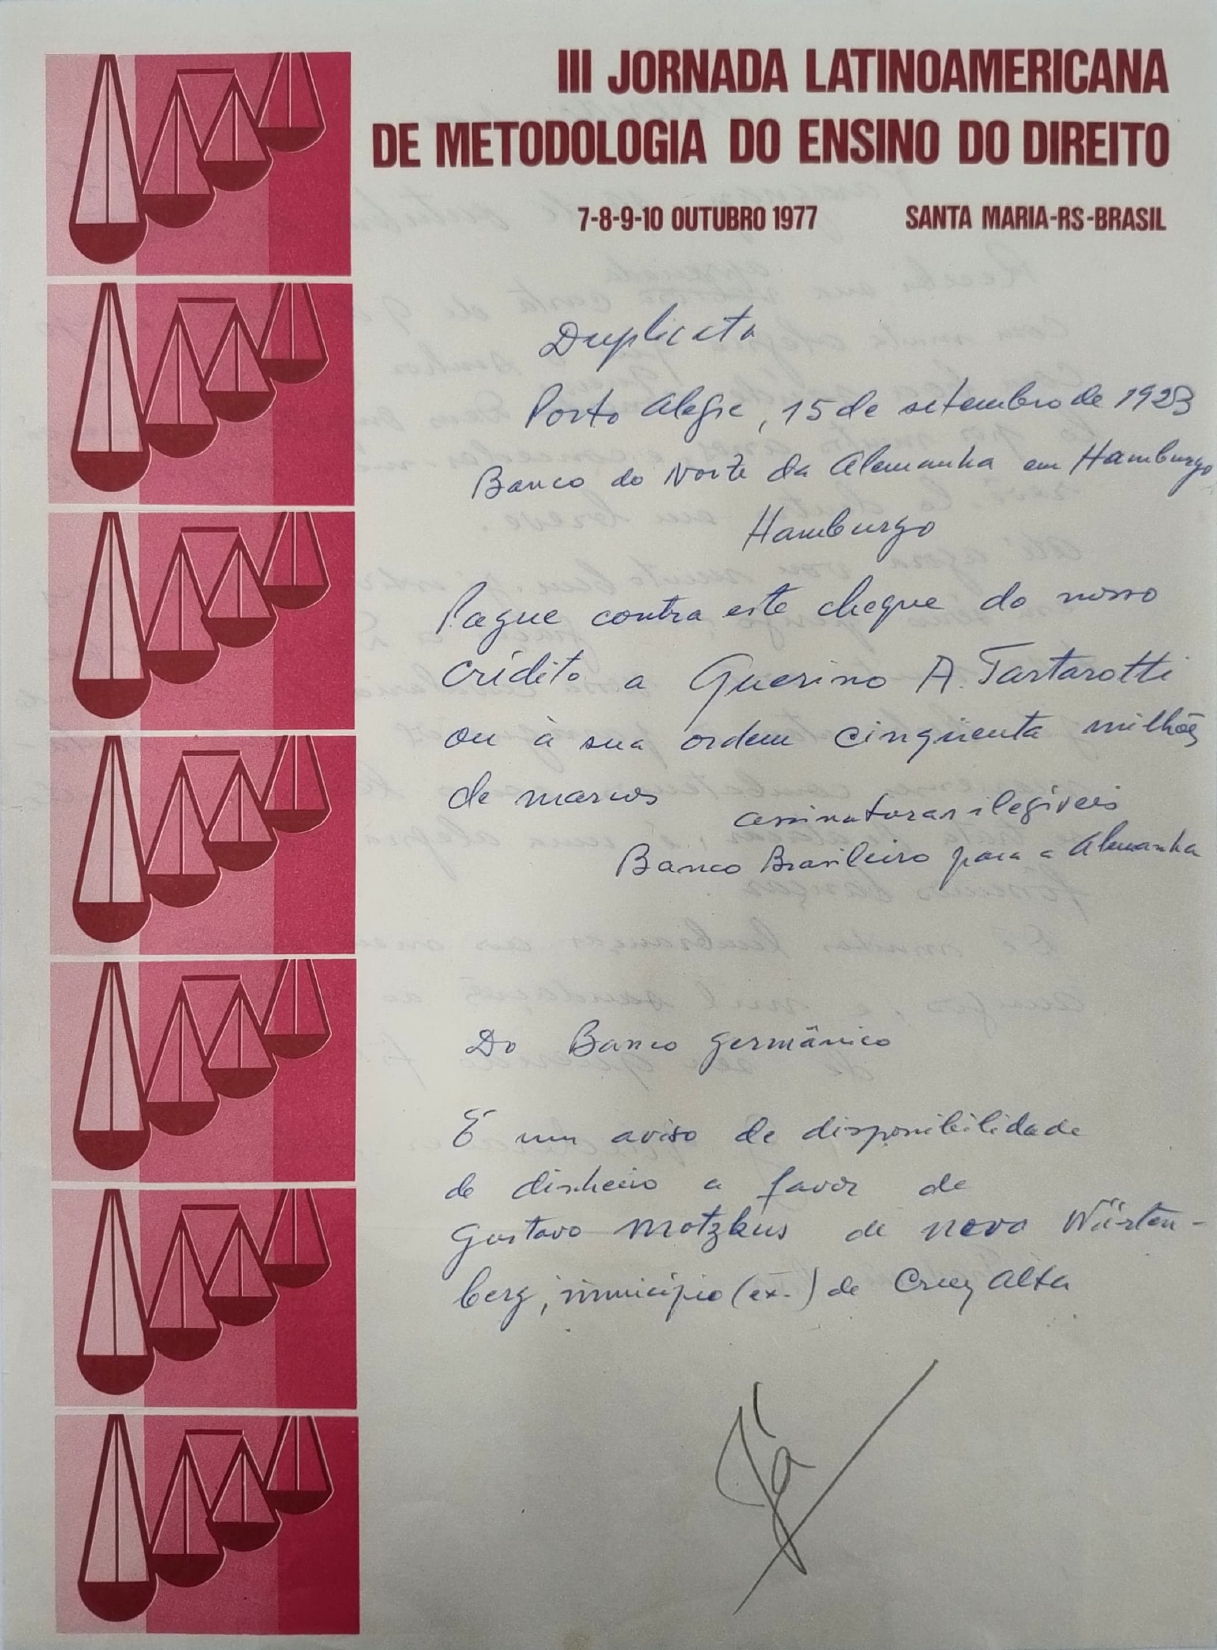 III JORNADA LATINOAMERICANA
DE METODOLOGIA DO ENSINO DO DIREITO
7-8-9-10 OUTUBRO 1977 SANTA MARIA-RS-BRASIL
Duplicata
Porto Alegre, 15 de setembro de 1923
Banco do Norte da Alemanha em Hamburgo
Hamburgo
Pague contra este cheque do nosso
crédito a Guerino A. Tartarotti
ou à sua ordem cinqüenta milhões
de marcos
assinaturas ilegíveis
Banco Brasileiro para a Alemanha
Do Banco germânico
É um aviso de disponibilidade
de dinheiro a favor de
Gustavo Motzkus de Nova Würten-
berg, município (ex.) de Cruz Alta
Já